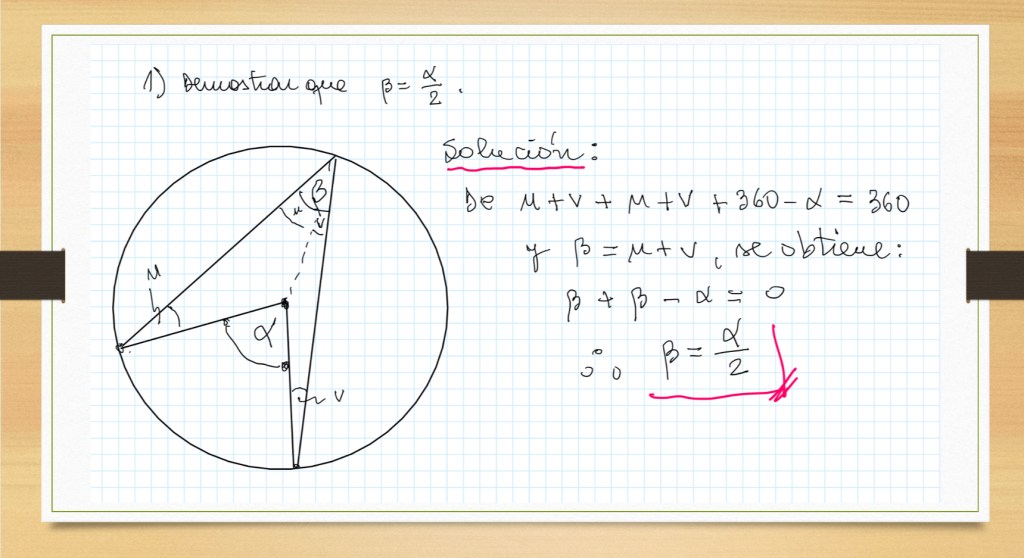 1) Demostrar que β = α/2.
Solución:
De μ + ν + μ + ν + 360 - α = 360
y β = μ + ν, se obtiene:
β + β - α = 0
∴ β = α/2
β
μ
ν
μ
α
ν